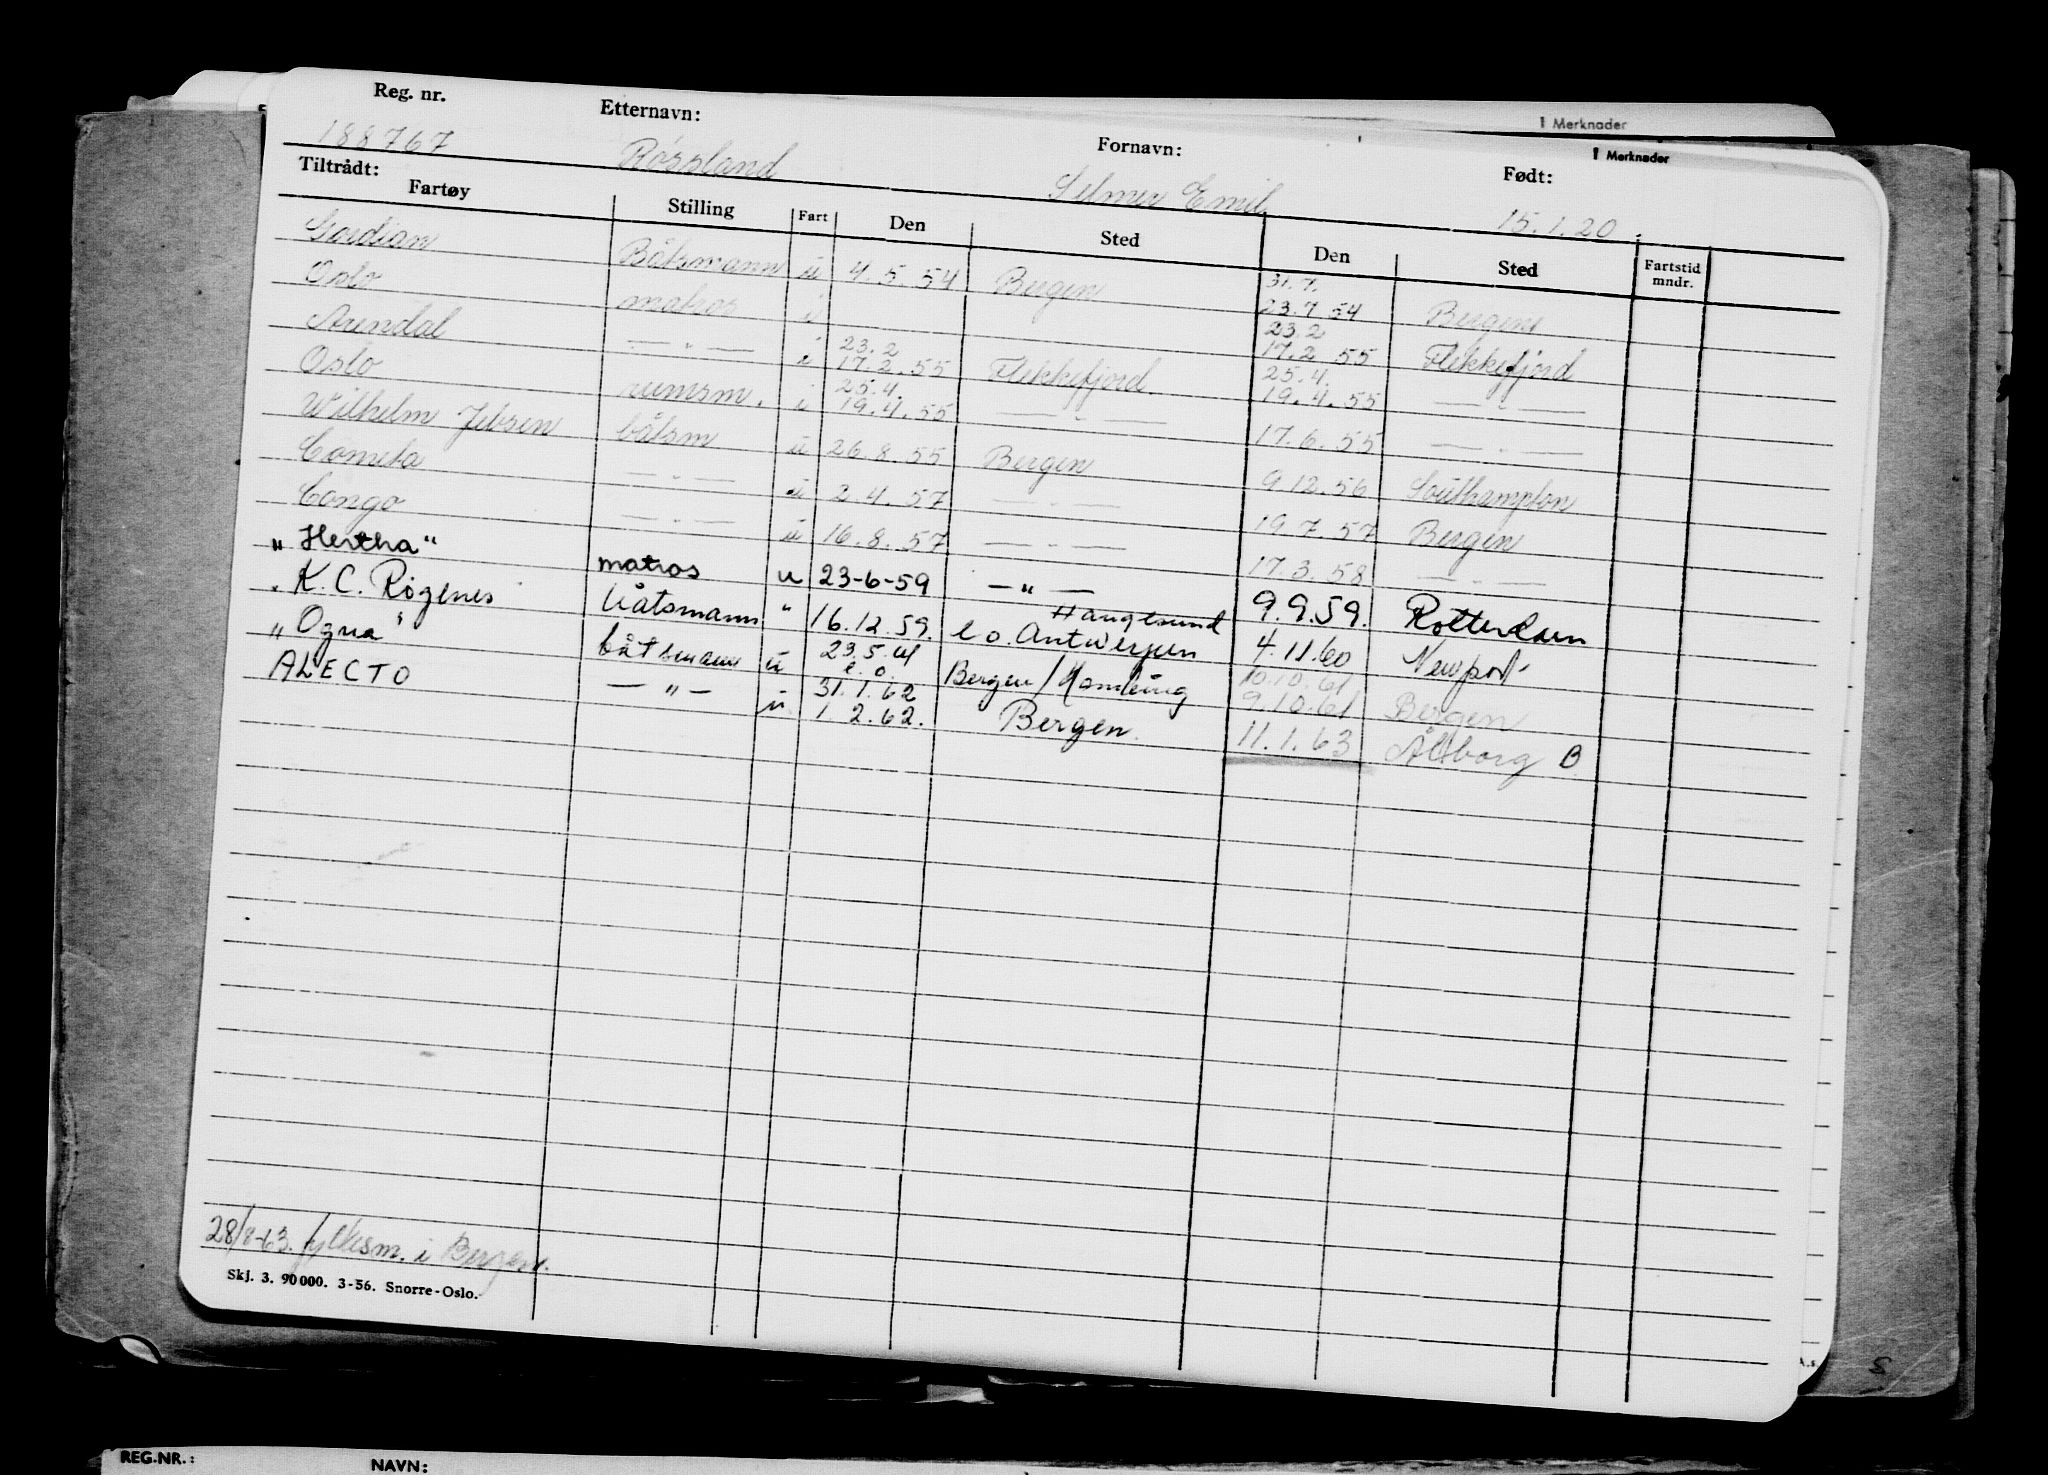 1 Merknader
1 Merknader
Reg. nr. Etternavn: Fornavn: Født:
188767 Røssland Selmer Emil 15.1.20
Tiltrådt:
Fartøy Stilling Fart Den Sted Den Sted Fartstid mndr.
Gordian Båtsmann u 4.5.54 Bergen 31.7. 23.7.54 Bergen
Oslo matros i 23.2 17.2.55 Flekkefjord
Arendal — " — i 23.2 17.2.55 Flekkefjord 25.4. 19.4.55 — " —
Oslo rumsm. i 25.4. 19.4.55 — " — 17.6.55 — " —
Wilhelm Jebsen båtsm u 26.8.55 Bergen 9.12.56 Southampton
Cometa — " — u 2.4.57 — " — 19.7.57 Bergen
Congo — " — u 16.8.57 — " — 17.3.58 — " —
"Hertha" matros u 23-6-59 — " — 9.9.59. Rotterdam
K. C. Rogenes båtsmann " 16.12.59. Haugesund e.o. Antwerpen 4.11.60 Newport
"Ogna" båtsmann u 23.5.61 e.o. Bergen/Hamburg 10.10.61 9.10.61 Bergen
ALECTO — " — u 31.1.62 1.2.62. Bergen. 11.1.63 Ålborg B
28/8-63. fylkesm. i Bergen.
Skj. 3. 90000. 3-56. Snorre-Oslo.
A.s.
S
REG.NR.: NAVN: